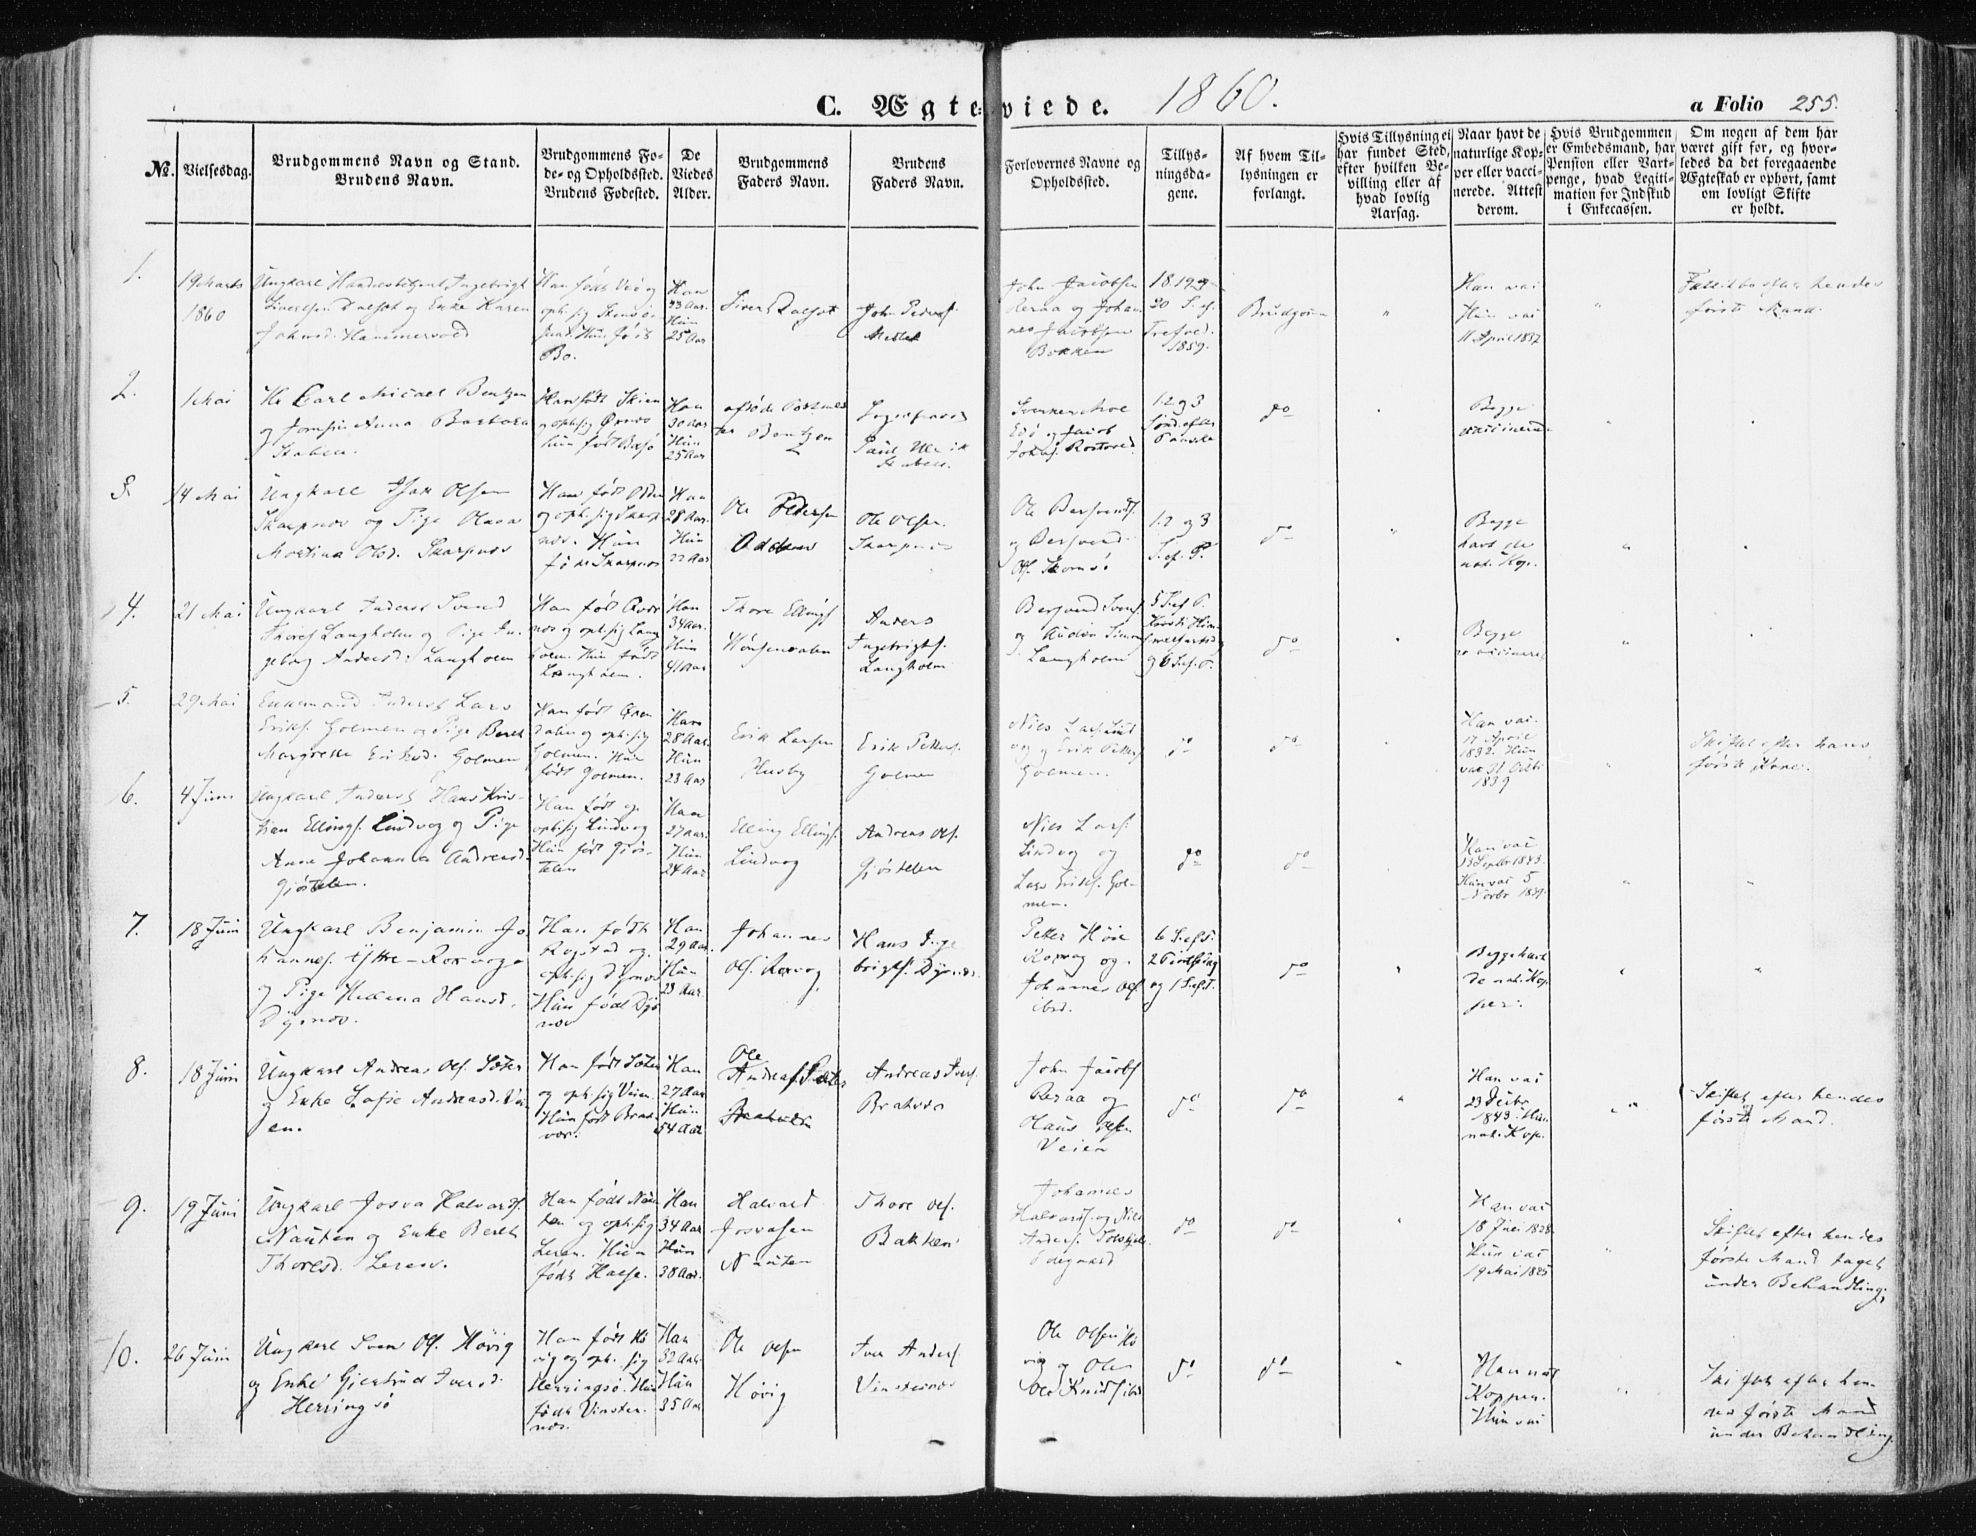 C. Ægteviede. 1860.
a Folio 255.
No.
Vielsesdag.
Brudgommens Navn og Stand.
Brudens Navn.
Brudgommens Fø-
de- og Opholdssted.
Brudens Fødested.
De
Viedes
Alder.
Brudgommens
Faders Navn.
Brudens
Faders Navn.
Forlovernes Navne og
Opholdssted.
Tillys-
ningsda-
gene.
Af hvem Til-
lysningen er
forlangt.
Hvis Tillysning ei
har fundet Sted,
efter hvilken Be-
villing eller af
hvad lovlig
Aarsag.
Naar havt de
naturlige Kop-
per eller vacci-
nerede. Attest
derom.
Hvis Brudgommen
er Embedsmand, har
Pension eller Vart-
penge, hvad Legiti-
mation for Indskud
i Enkecassen.
Om nogen af dem har
været gift før, og hvor-
ledes da det foregaaende
Ægteskab er ophørt, samt
om lovligt Skifte
er holdt.
1.
19 Marts
1860
Ungkarl
Ingebrigt
og Enke Karen
Johnsd. Hammervold
Han født
Bo.
Han
33 Aar.
Hun
25 Aar
John Peders.
John Jacobsen
Reraa og Johan-
nes Jacobsen
Bakken
18 19 og
20 S. ef.
Tref.
1859.
Brudgom
"
Han vac
Hun vac
11 April 1837
"
Skiftet efter hendes
første Mand.
2.
1 Mai
Hr Carl Micael Bentzen
og Jomfru Anna Barbara
Stabell.
Han født Skien
og oph. sig Ørnes
hun født
Han
30 Aar
Hun
25 Aar
Postmes
ter Bentzen
Paul Ulrik
Stabell.
Edø og Jacob
Johns. Rostved
1 2 og 3
Sønd. efter
Paaske
do
Begge
vaccinered
3.
14 Mai
Ungkarl Isak Olsen
Skarpnes og Pige Olava
Martina Olsd. Skarpnes
Han født Odden
og oph. sig Skarp-
nes. Hun
født Skarpnes
Han
28 Aar.
Hun
22 Aar
Ole Pedersen
Odden
Ole Olsen
Skarpnes
Ole Bersvends.
og Bersvend
Ols.
1. 2 og 3
S. ef. P.
do
"
Begge
havt de
nat. Kop.
"
4.
21 Mai
Ungkarl Inderst Svend
Thores. Langholm og Pige In-
geborg Andersd. Langholm
Han født
nes og oph. sig Lang
holm. Hun født
Langholm.
Han
34 Aar.
Hun
41 Aar
Thore Ellings.
Anders
Ingebrigts.
Langholm
Bersvend Svens.
og Audun Simons.
Langholm
5 S. ef. P.
Kristi Him-
melfartsd.
og 6 S. ef. P.
do
"
Begge
vaccinered
"
5.
29 Mai
Enkemand Inderst Lars
Eriks. Golmen og Pige Beret
Margrethe Eriksd. Golmen
Han født Øren
dalen og oph. sig
Golmen. Hun
født Golmen.
Han
28 Aar.
Hun
23 Aar
Erik Larsen
Husby
Erik Petters.
Golmen
Nils Lars. Lind
vog og Erik Petters.
Golmen.
do
do
Han vac.
17 April
1832. Hun
vac 31 Octbr
1839
Skiftet efter hans
første Kone.
6.
4 Juni
Ungkarl Inderst Hans Kris-
tian Ellings. Lindvog og Pige
Anne Johanna Andreasd.
Gjøstelen.
Han født og
oph. sig Lindvog
Hun født Gjøs-
telen
Han
27 Aar.
Hun
24 Aar
Elling Ellings.
Lindvog
Andreas Ols.
Gjøstelen
Nils Lars.
Lindvog og
Lars Eriks. Gol-
men.
do
do
Han vac
13 Septbr 1843.
Hun vac 5
Novbr 1839.
"
"
7.
18 Juni
Ungkarl Benjamin Jo
hannes. Ytre-Roxvog
og Pige Hellena Hansd.
Dyrnes.
Han født
Rogstad og
oph. sig Dyrnes
Hun født Dyr
nes
Han
29 Aar.
Hun
23 Aar.
Johannes
Ols. Roxvog
Hans Inge
brigts. Dyrnes.
Petter Høie
Roxvog og
Johannes Ols.
ibid.
6 S. ef. P.
2 Pintsedag
og 1 S. ef. T.
do
"
Begge havt
de nat. Kop
per.
"
"
8.
18 Juni
Ungkarl Andreas Ols. Sæter
og Enke Sofie Andreasd. Vei-
en.
Han født Sæter
og oph. sig Veien.
Hun født Brat-
vær.
Han
27 Aar
Hun
54 Aar
Ole
Andreas. Sæter
Andreas Ivers.
Bratvær
John Jacobs.
Reraa og
Hans Olsen
Veien
do
do
"
Han vac
23 Decbr
1843. Hun
nat. Kop.
"
Skiftet efter hendes
første Mand.
9.
19 Juni
Ungkarl Josva Halvards.
Nauten og Enke Beret
Thoresd. Leren.
Han født Nau-
ten og oph. sig
Leren. Hun
født Halse.
Han
34 Aar
Hun
38 Aar.
Halvard
Josvasen
Nauten
Thore Ols.
Bakken
Johannes
Halvards. og Nils
Anders.
Ødegaard
do
do
"
Han vac
18 Juli 1828.
Hun vac
19 Mai 1825
"
Skiftet efter hendes
første Mand taget
under Behandling.
10.
26 Juni
Ungkarl Sven Ols. Høvig
og Enke Gjertrud Iversd.
Herringsø
Han født Hø
vig og oph. sig
Herringsø. Hun
født Vinster-
nes.
Han
32 Aar.
Hun
35 Aar
Ole Olsen
Høvig
Iver Anders.
Vinsternes
Ole Olsen Hø
vig og Ole
Knuds. ibid
do
do
"
Han nat
Kopper.
Hun vac
"
Skiftet efter hen-
des første Mand
under Behandling.